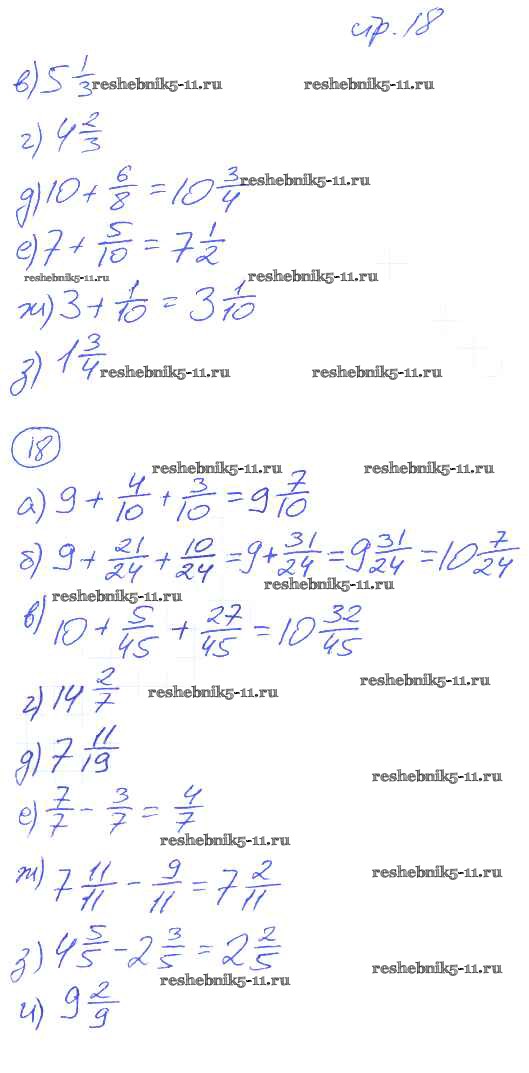 стр. 18
в) 5 1/3 reshebnik5-11.ru reshebnik5-11.ru
г) 4 2/3
д) 10 + 6/8 = 10 3/4 reshebnik5-11.ru
е) 7 + 5/10 = 7 1/2
reshebnik5-11.ru reshebnik5-11.ru
ж) 3 + 1/10 = 3 1/10
з) 1 3/4 reshebnik5-11.ru reshebnik5-11.ru
18
reshebnik5-11.ru reshebnik5-11.ru
а) 9 + 4/10 + 3/10 = 9 7/10
б) 9 + 21/24 + 10/24 = 9 + 31/24 = 9 31/24 = 10 7/24
reshebnik5-11.ru reshebnik5-11.ru
в) 10 + 5/45 + 27/45 = 10 32/45
г) 14 2/7 reshebnik5-11.ru reshebnik5-11.ru
д) 7 11/19
reshebnik5-11.ru
е) 7/7 - 3/7 = 4/7
reshebnik5-11.ru
ж) 7 11/11 - 9/11 = 7 2/11 reshebnik5-11.ru
з) 4 5/5 - 2 3/5 = 2 2/5
reshebnik5-11.ru reshebnik5-11.ru
и) 9 2/9